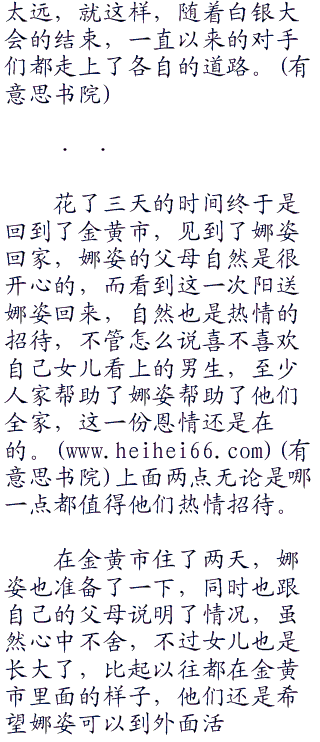 太远，就这样，随着白银大
会的结束，一直以来的对手
们都走上了各自的道路。(有
意思书院)
. .
花了三天的时间终于是
回到了金黄市，见到了娜姿
回家，娜姿的父母自然是很
开心的，而看到这一次阳送
娜姿回来，自然也是热情的
招待，不管怎么说喜不喜欢
自己女儿看上的男生，至少
人家帮助了娜姿帮助了他们
全家，这一份恩情还是在
的。(www.heihei66.com)(有
意思书院)上面两点无论是哪
一点都值得他们热情招待。
在金黄市住了两天，娜
姿也准备了一下，同时也跟
自己的父母说明了情况，虽
然心中不舍，不过女儿也是
长大了，比起以往都在金黄
市里面的样子，他们还是希
望娜姿可以到外面活